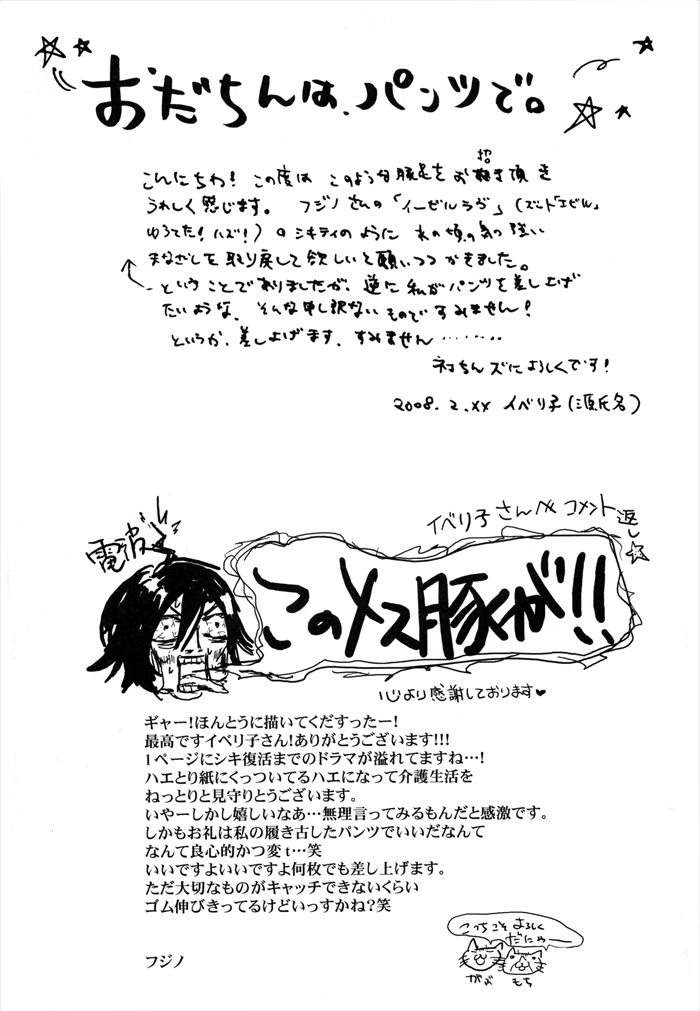 おだちんは、パンツで。
こんにちわ! この度は このような豚足をお招き頂き
うれしく感じます。 フジノさんの「イーゼルラヴ」(ズードエゼル、
ゆうてた!ハズ!) のシキティのように あの頃の気つ強い
まなざしを取り戻して欲しいと願いつつかきました。
ということでありましたが、逆に私がパンツを差し上げ
たいような、そんな申し訳ないものですみません!
というか、差し上げます、すみません………
ネコちんズによろしくです!
2008.2.xx イベリ子(源氏名)
イベリ子さんへ コメント返し
電波
このメス豚が!!
心より感謝しております♥
ギャー!ほんとうに描いてくだすったー!
最高ですイベリ子さん!ありがとうございます!!!
1ページにシキ復活までのドラマが溢れてますね…!
ハエとり紙にくっついてるハエになって介護生活を
ねっとりと見守りとうございます。
いやーしかし嬉しいなあ…無理言ってみるもんだと感激です。
しかもお礼は私の履き古したパンツでいいだなんて
なんて良心的かつ変t…笑
いいですよいいですよ何枚でも差し上げます。
ただ大切なものがキャッチできないくらい
ゴム伸びきってるけどいっすかね?笑
フジノ
こっちこそ よろしく
だにゃー
がぶ もち